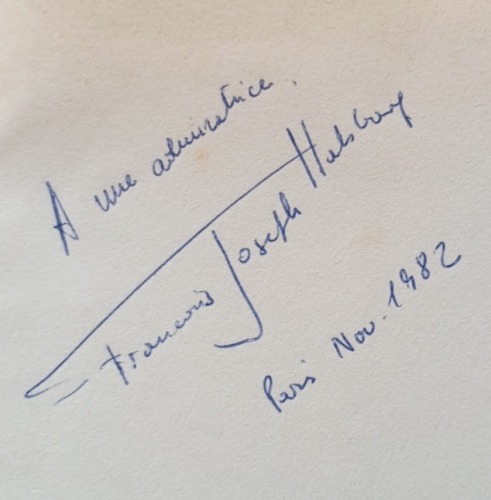 A une admiratrice.
François Joseph Habsburg
Paris Nov. 1982